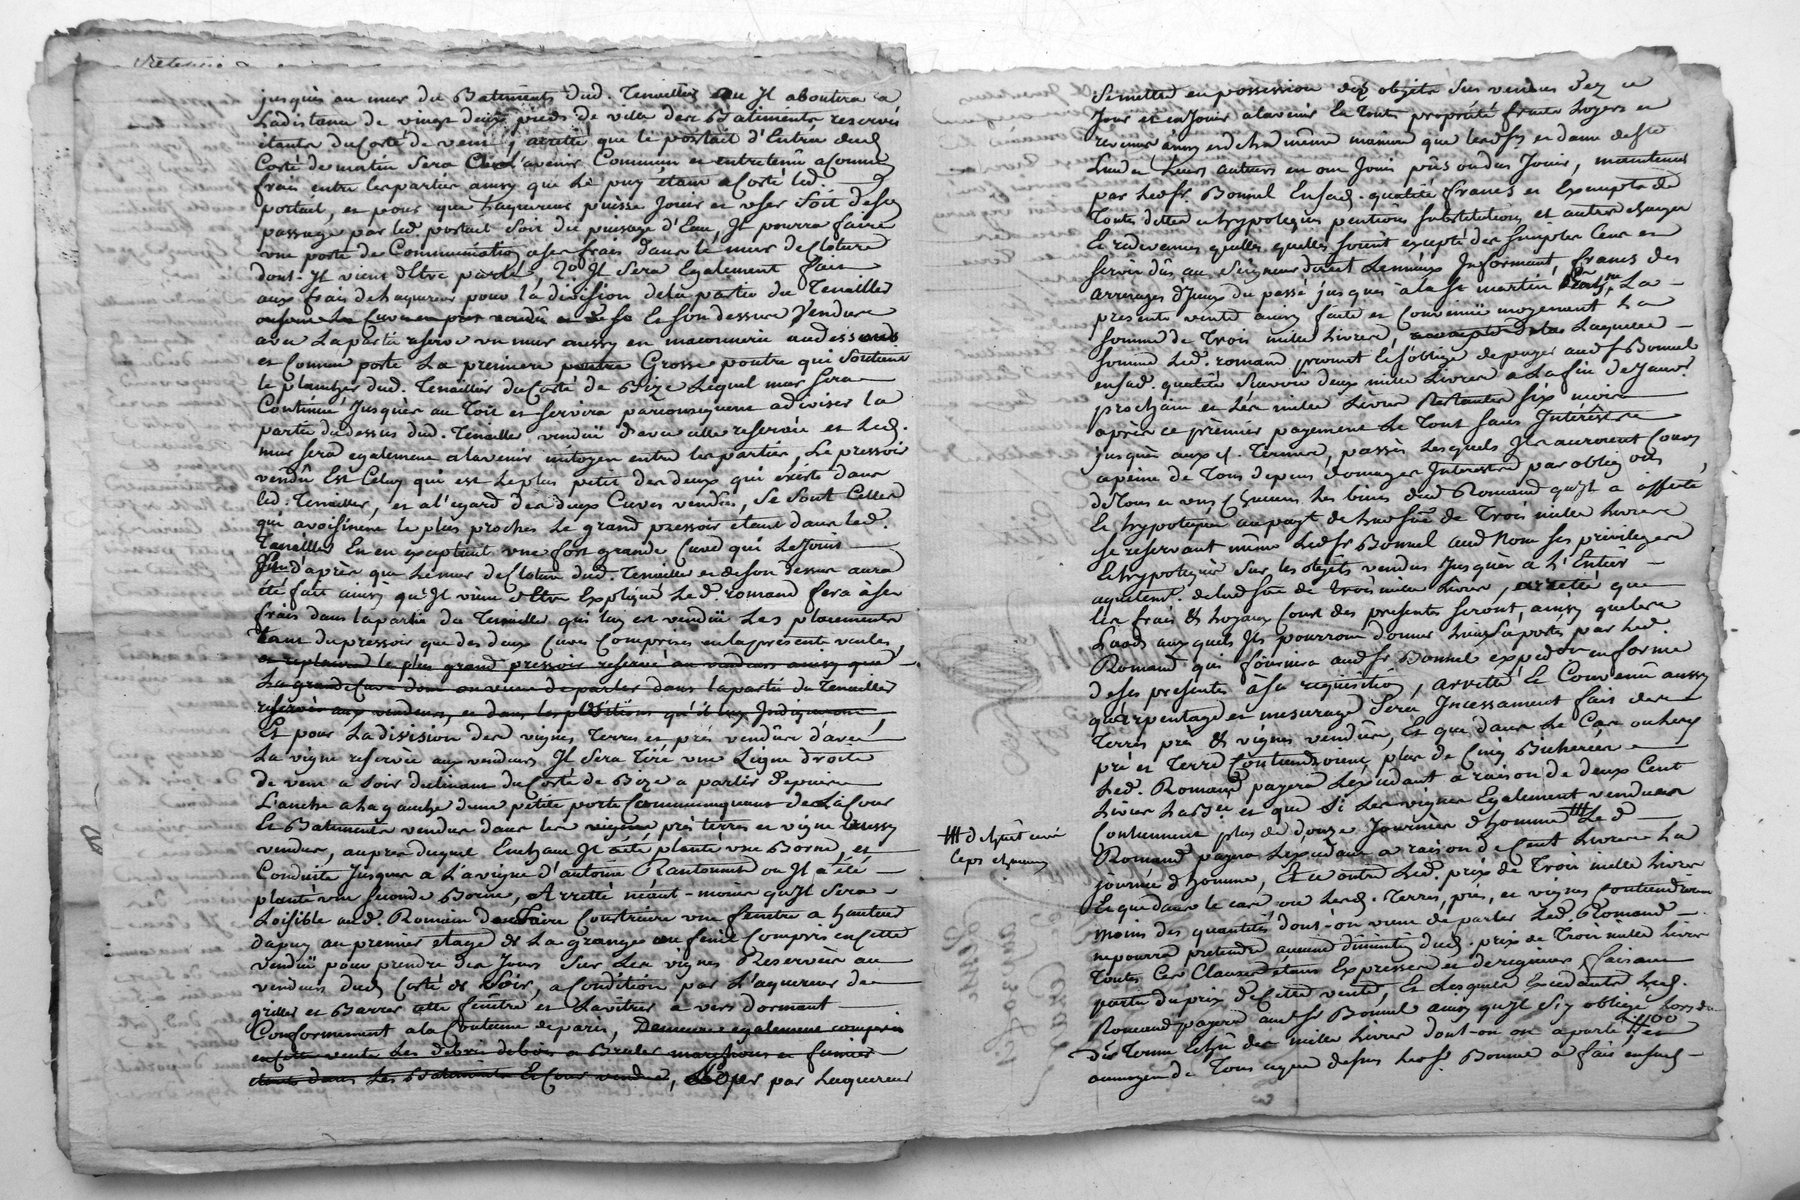 jusques au mur du Batiments dud. Tenailler ou Jl aboutira a
la distance de vingt deux pieds de ville des Batiments reservés
étants du Coté de vent, arrétté que le portail d'Entrée dud
Coté de matin sera a l'avenir Commun et entretenû a comun
frais entre les parties ainsy que le puy étant a Coté led
portail, et pour que l'aquereur puisse Jouir et user soit de son
passage par led portail soit du puisage d'Eau, Jl pourra faire
une porte de Communication a ses frais dans le mur de Cloture
dont Jl vient d'Etre parlé, 2o Jl sera Egalement fait
aux frais de l'aquereur pour la division de la partie du Tenailler
Et son dessus Vendue
avec la partie reservé un mur aussy en maconnerie au dessous
et Comme porte la premiere poutre Grosse poutre qui soutient
le plancher dud. Tenailler du Coté de Bize lequel mur sera
Continué Jusques au Toit et servira par consequent a diviser la
partie du dessus dud. Tenailler vendüe d'avec celle reservée et led.
mur sera egalement a l'avenir mitoyen entre les parties, Le pressoir
vendû Est Celuy qui est le plus petit des deux qui existe dans
led. Tenailler, et a l'egard des deux Cuves vendues, se sont Celles
qui avoisinent le plus proches le grand pressoir étant dans led.
Tenailler En en exceptant une fort grande Cuve qui le Joint
d'après que le mur de Cloture dud. Tenailler et de son dessus aura
été fait ainsy qu'Jl vient d'Etre Expliqué Led. romand fera à ses
frais dans la partie du Tenailler qui luy est vendüe les placements
tant du pressoir que des deux Cuves Comprises en la presente vente,
et replacera le plus grand pressoir reservé au vendeurs ainsy que
la grande Cuve dont on vient de parler dans la partie du Tenailler
reservée aux vendeurs, et dans les positions qu'il luy Jndiqueront
Et pour la division des vignes Terres et prés vendûes d'avec
la vigne reservée aux vendeurs Jl sera Tiré une Ligne droite
de vent a soir du Coté de Bize a partir depuis
L'anche a la gauche d'une petite porte Communiquant de la Cour
Et Batiments vendus dans les vignes prés terres et vigne aussy
vendus, auprès duquel Enchant Jl a été planté une Borne, et
Conduite Jusques a la vigne d'antoine Rantonnet ou Jl a été
planté une seconde Borne, Arretté néant-moins qu'Jl sera
Loisible aud. Romain de faire Construire une fenetre a hauteur
dapuy au premier etage de La grange au fenil Compris en Cette
vendüe pour prendre des Jours sur Les vignes Reservées au
vendeurs dud Coté de Soir, a Condition par l'aquereur de
griller et Barrer cette fenêtre et la vitrer a vere dormant
Conformement a la Coutume de paris, Demeure egalement compris
en cette vente Les debris de bois a Bruler marchons et fumier
étants dans Les Batiments Et Cour vendue, par l'aquereur
Se mettre en possession des objets sus vendus dez ce
Jour et en Jouir a l'avenir En toute proprieté fruits loyers et
revenus ainsy et de la même maniere que lesdts en dame deste
Lun de Leurs auteurs en ont Joui pûs ou dus Jouir, maintenus
par Led Sr. Bonnel En sad. qualité francs et Exempts de
Toutes dettes et hypoteques pentions substitutions et autres charges
Et redevances quelles quelles soient excepté des simples Cens et
servis dûs au Seigneur direct
arrerages d'Jceux du passé jusques à la St martin La
presente vente ainsy faite et Convenüe moyenant La
somme de Trois mille Livres, Laquelle
somme Led. romand promet et s'oblige de payer aud Sr Bonnel
en sad. qualité sçavoir deux mille Livres a La fin de Janvr.
prochain et les mille Livres Restantes six mois
après ce premier payement le Tout sans Jnterêst
jusques aux d. Termes, passés lesquels Jls auroient Cours
a peine de Tous depens domages Jnterests par oblig on
de Tous et uns Chacuns les biens dud Romand qu'Jl a affecté
Et hypotequé au payt de lad. som de Trois mille Livres
se reservant même Led Sr Bonnel aud Nom ses privileges
Et hypoteques sur les objets vendus Jusques a L'Entier
aquitemt. de lad. som de trois mille Livres, arretté que
les frais & loyaux Cout des presentes seront, ainsy que les
Laods auxquels Jls pourront donner lieu suportés par Led.
Romand qui fournira aud Sr Bonnel expedon en forme
de ses presentes à sa requisition, arretté Et Convenû aussy
qu'arpentage et mesurage sera Jncessament fait des
Terres prés & vignes vendûes, Et que dans Le Cas ou Les
pré et Terre Contiendroient plus de Cinq Bicherées
Led. Romand payera L'excedant a raison de deux Cent
Livres La Bée et que si Les vignes Egalement vendues
Contiennent plus de douze Journées d'homme # Led
# de huit cent
ceps chacune
Romand payera L'excedant a raison de Cent Livres La
journée d'homme, Et ce outre Led. prix de Trois mille Livres
Et que dans le cas ou Lesd. Terres, prés, et vignes contiendroient
moins des quantités dont-on vient de parler Led. Romand
ne pourra pretendre aucune diminution dud. prix de Trois mille Livres
Toutes Ces Clauses étant Expresses et de rigueur faisant
partie du prix de Cette vente Et Lesquels Excedants Led.
Romand payera aud Sr Bonnel ainsy qu'Jl s'y oblige Lors du
dr Terme Echû des mille Livres dont-on on a parlé, et
au moyen de Tous ce que dessus Led Sr. Bonnel a fait en sad